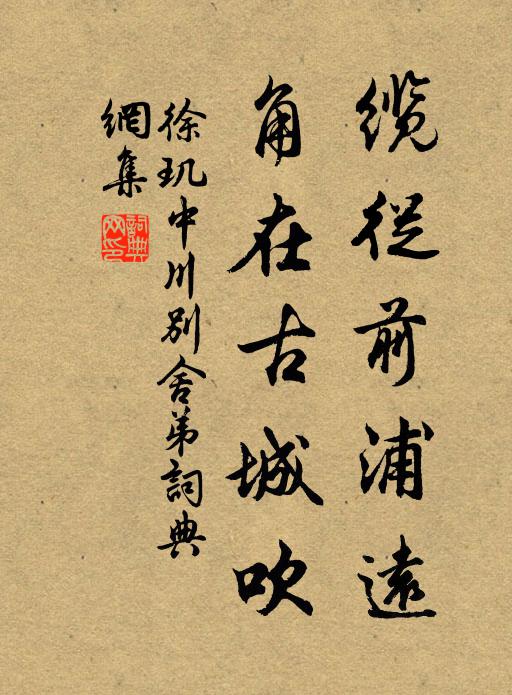 缆從前浦遠
角在古城吹
徐玑中川別舍弟詞典
網集
詞典
网印